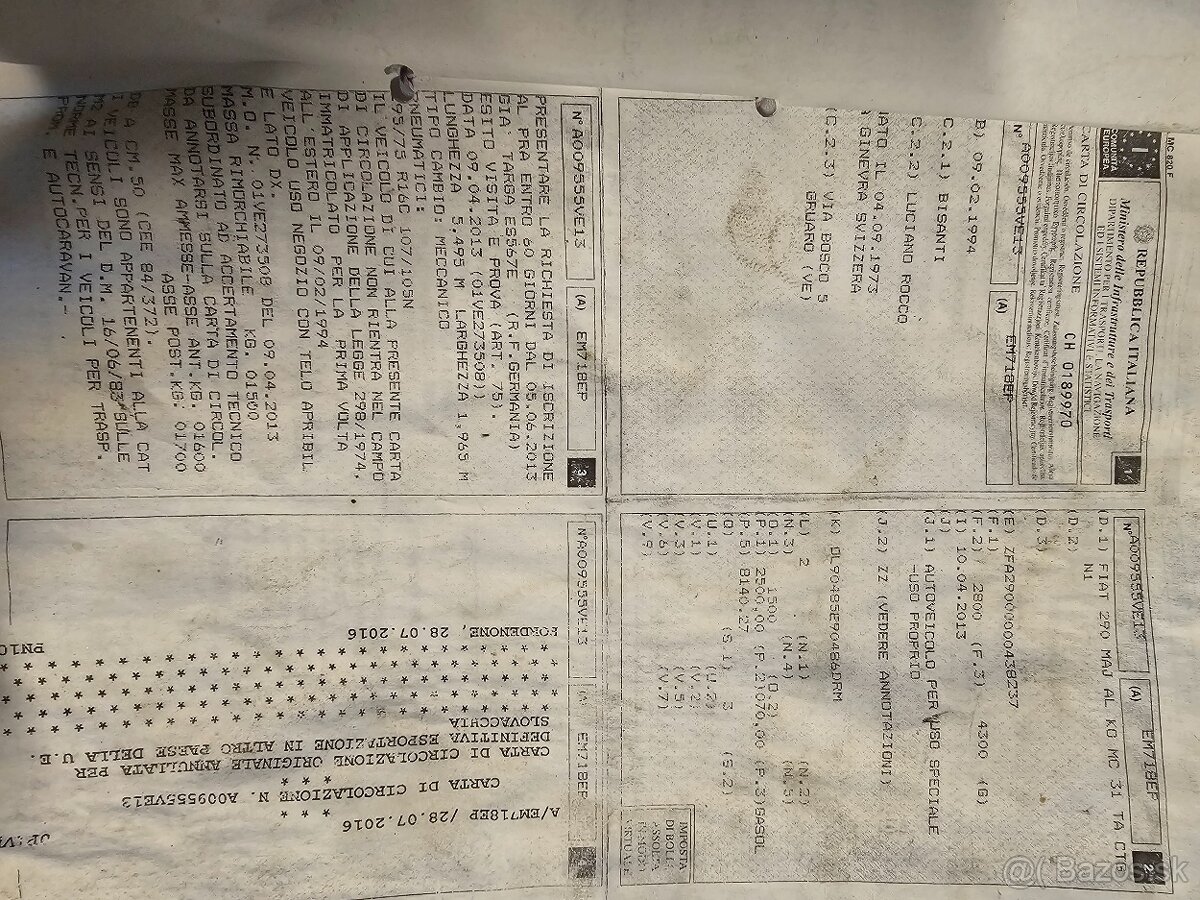 MC 820 F
REPUBBLICA ITALIANA
Ministero delle Infrastrutture e dei Trasporti
DIPARTIMENTO PER I TRASPORTI, LA NAVIGAZIONE
ED I SISTEMI INFORMATIVI E STATISTICI
1
I
COMUNITÀ
EUROPEA
CARTA DI CIRCOLAZIONE
CH 0189970
N° A009555VE13
(A) EM718EP
B) 09.02.1994
C.2.1) BISANI
C.2.2) LUCIANO ROCCO
NATO IL 04.09.1973
A GINEVRA SVIZZERA
(C.2.3) VIA BOSCO 5
GRUARO (VE)
N° A009555VE13
(A) EM718EP
2
(D.1) FIAT 290 MAJ AL KG MC 31 TA CTD
N1
(D.2)
(D.3)
(E) ZFA29000000438237
(F.1)
(F.2) 2800 (F.3) 4300 (G)
(I) 10.04.2013
(J)
(J.1) AUTOVEICOLO PER USO SPECIALE
-USO PROPRIO
(J.2) ZZ (VEDERE ANNOTAZIONI)
(K) OL90485E90486DRM
(L) 2 (N.1) (N.2)
(N.3) (N.4) (N.5)
(O.1) 1500 (O.2)
(P.1) 2500,00 (P.2)070,00 (P.3)GASOL
(P.5) 8140.27
(Q) (S.1) 3 (S.2)
(U.1) (U.2)
(V.1) (V.2)
(V.3) (V.5)
(V.6) (V.7)
(V.9)
IMPOSTA
DI BOLLO
ASSOLTA
IN MODO
VIRTUALE
N° A009555VE13
(A) EM718EP
3
PRESENTARE LA RICHIESTA DI ISCRIZIONE
AL PRA ENTRO 60 GIORNI DAL 05.06.2013
GIA' TARGA ES567E (R.F.GERMANIA)
ESITO VISITA E PROVA (ART. 75).
DATA 09.04.2013 (01VE273508))
LUNGHEZZA 5,495 M LARGHEZZA 1,965 M
TIPO CAMBIO: MECCANICO
PNEUMATICI:
195/75 R16C 107/105N
IL VEICOLO DI CUI ALLA PRESENTE CARTA
DI CIRCOLAZIONE NON RIENTRA NEL CAMPO
DI APPLICAZIONE DELLA LEGGE 298/1974.
IMMATRICOLATO PER LA PRIMA VOLTA
ALL'ESTERO IL 09/02/1994
VEICOLO USO NEGOZIO CON TELO APRIBIL
E LATO DX.
M.O. N. 01VE273508 DEL 09.04.2013
MASSA RIMORCHIABILE KG. 01500
SUBORDINATO AD ACCERTAMENTO TECNICO
DA ANNOTARSI SULLA CARTA DI CIRCOL.
MASSE MAX AMMESSE-ASSE ANT.KG. 01600
ASSE POST.KG. 01700
DE A CM.50 (CEE 84/372).
I VEICOLI SONO APPARTENENTI ALLA CAT
AI SENSI DEL D.M. 16/06/83 SULLE
TECN.PER I VEICOLI PER TRASP.
E AUTOCARAVAN.-
N° A009555VE13
(A) EM718EP
A/EM718EP /28.07.2016
* * *
CARTA DI CIRCOLAZIONE N. A009555VE13
* * *
CARTA DI CIRCOLAZIONE ORIGINALE ANNULLATA PER
DEFINITIVA ESPORTAZIONE IN ALTRO PAESE DELLA U.E.
SLOVACCHIA
PORDENONE, 28.07.2016
@( Bazos.sk